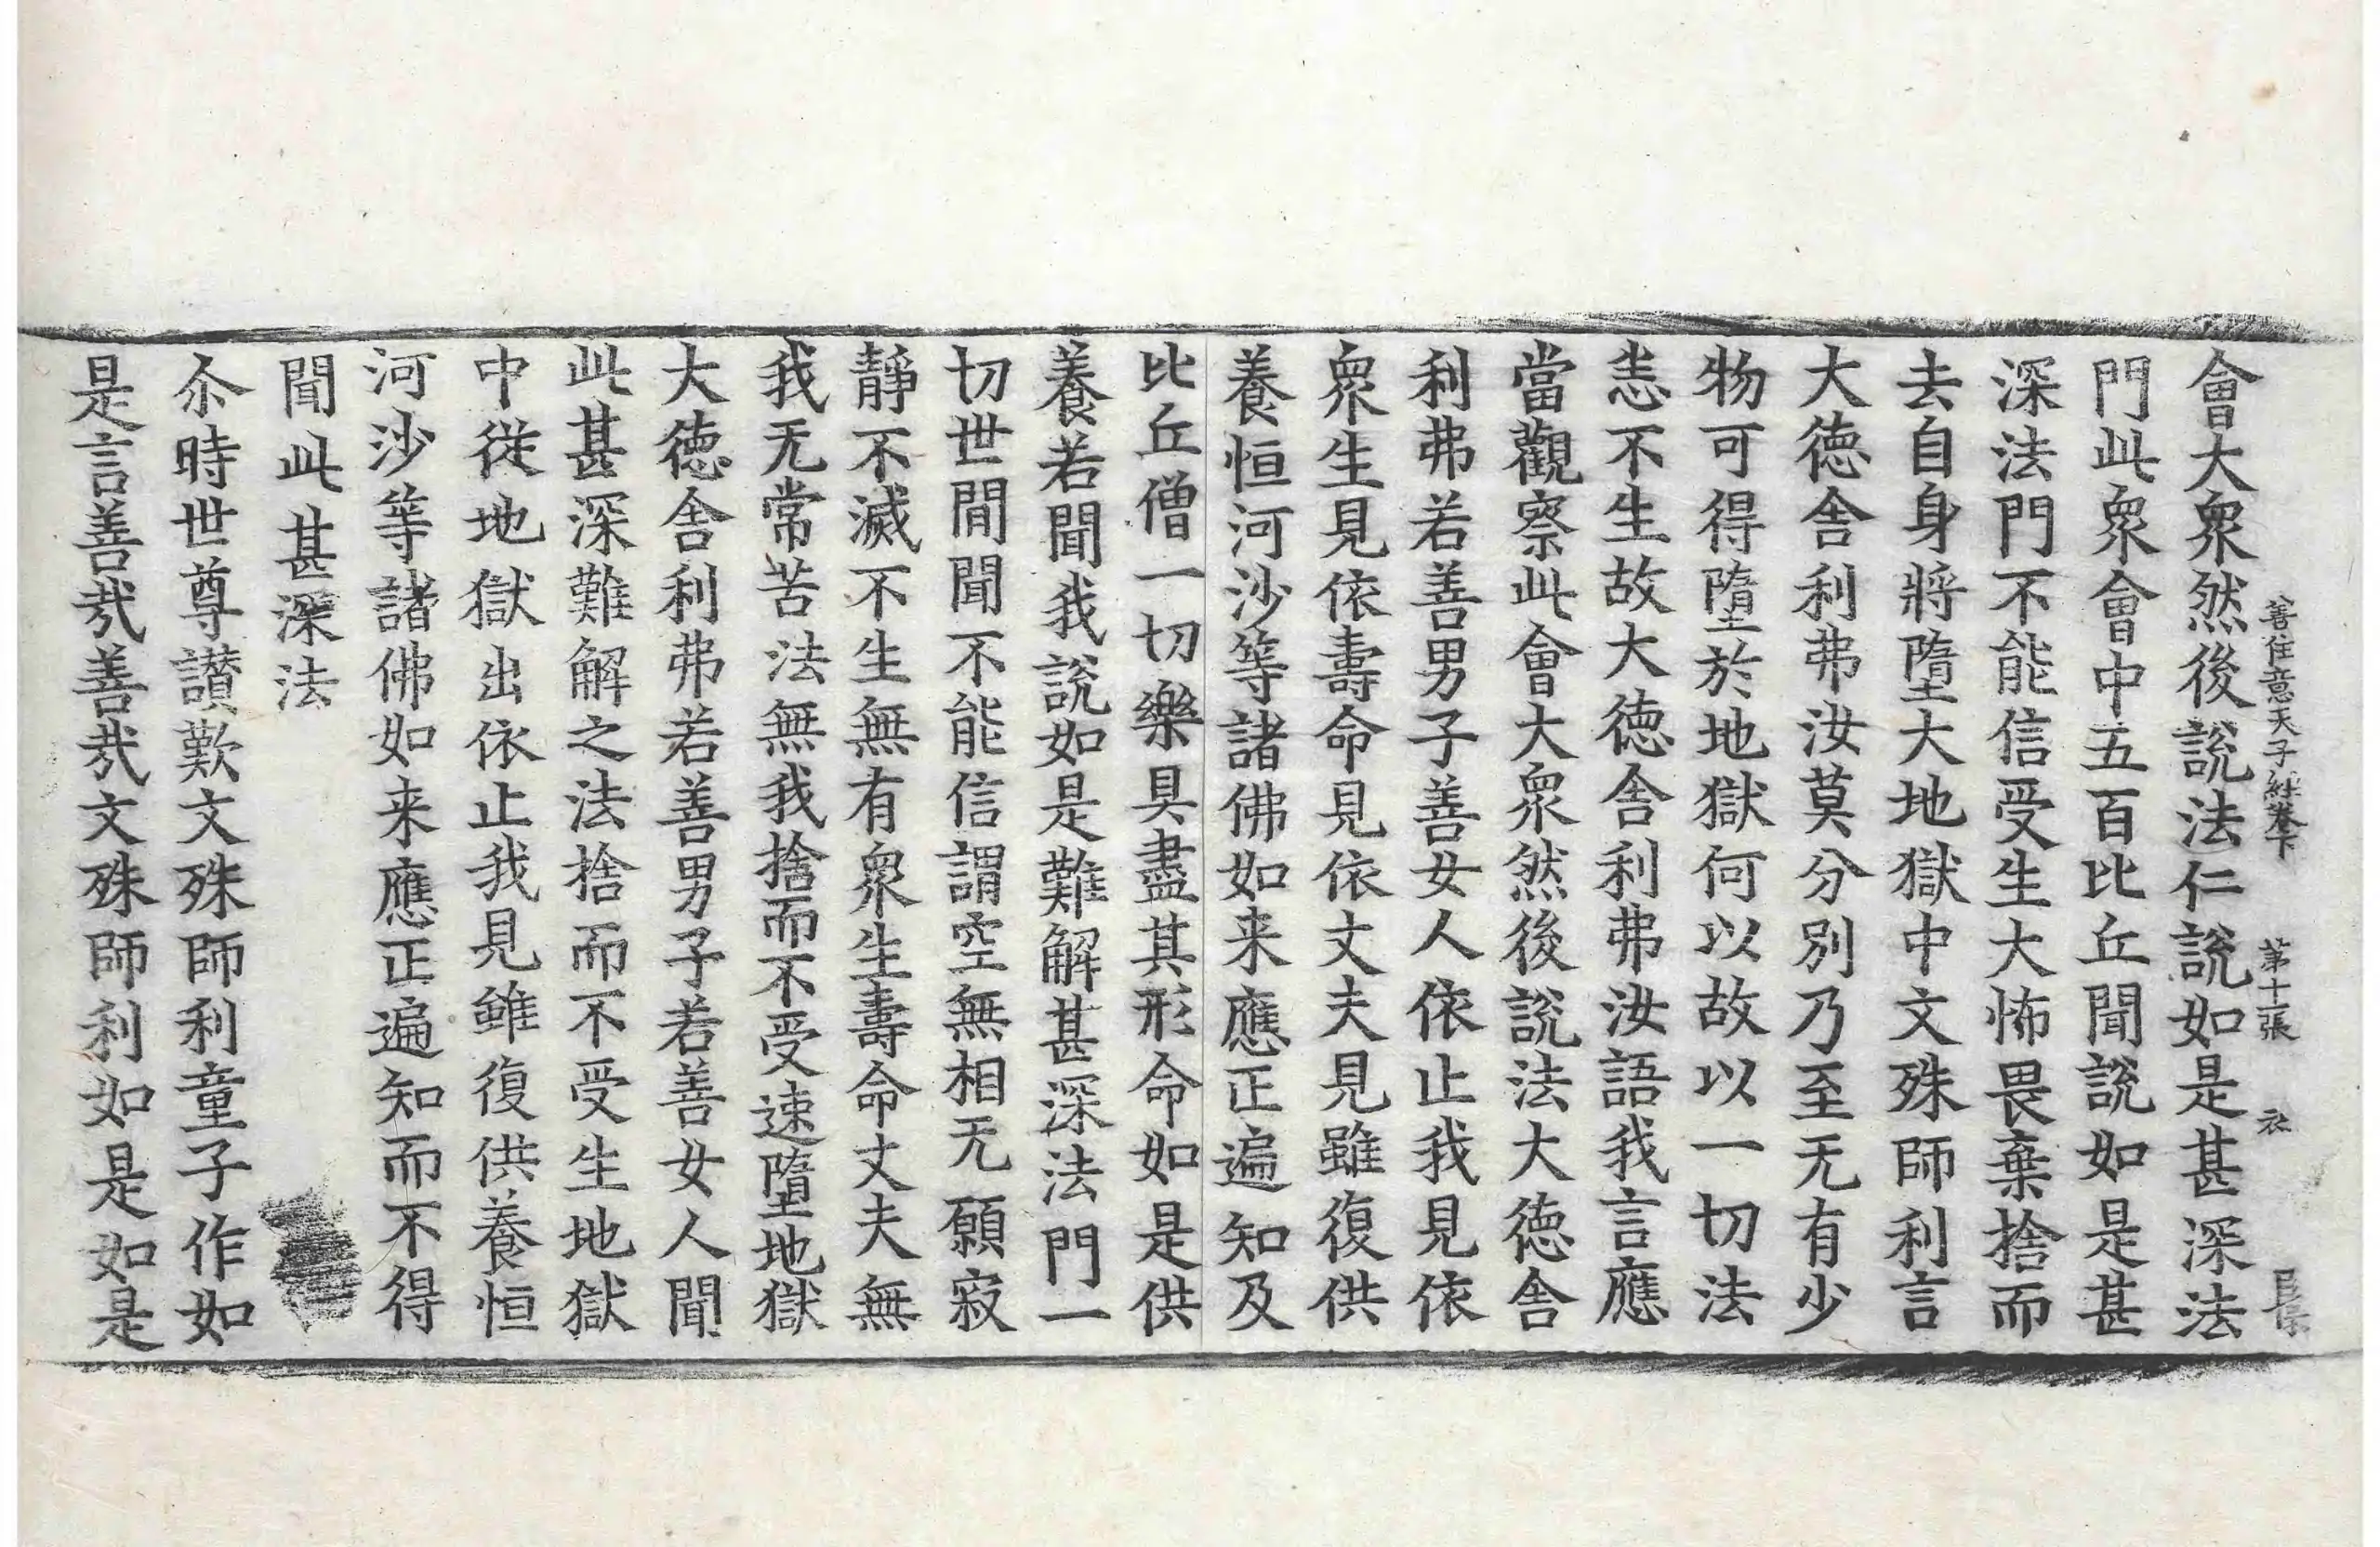 善住意天子經卷下 第十二張 衣
會大衆然後說法仁說如是甚深法
門此衆會中五百比丘聞說如是甚
深法門不能信受生大怖畏棄捨而
去自身將墮大地獄中文殊師利言
大德舍利弗汝莫分別乃至无有少
物可得墮於地獄何以故以一切法
恚不生故大德舍利弗汝語我言應
當觀察此會大衆然後說法大德舍
利弗若善男子善女人依止我見依
衆生見依壽命見依丈夫見雖復供
養恒河沙等諸佛如来應正遍知及
比丘僧一切樂具盡其形命如是供
養若聞我說如是難解甚深法門一
切世間聞不能信謂空無相无願寂
靜不滅不生無有衆生壽命丈夫無
我无常苦法無我捨而不受速墮地獄
大德舍利弗若善男子若善女人聞
此甚深難解之法捨而不受生地獄
中從地獄出依止我見雖復供養恒
河沙等諸佛如来應正遍知而不得
聞此甚深法
尒時世尊讃歎文殊師利童子作如
是言善哉善哉文殊師利如是如是